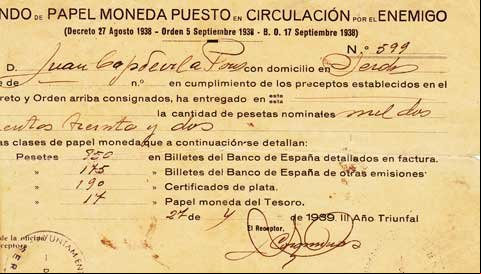 NDO DE PAPEL MONEDA PUESTO EN CIRCULACIÓN POR EL ENEMIGO
(Decreto 27 Agosto 1938 - Orden 5 Septiembre 1938 - B. O. 17 Septiembre 1938)
N.º 599
D. Juan Capdevila Pons con domicilio en
de n.º en cumplimiento de los preceptos establecidos en el
reto y Orden arriba consignados, ha entregado en este
esta
la cantidad de pesetas nominales mil dos
cientos treinta y dos
as clases de papel moneda que a continuación se detallan:
Pesetas 850 en Billetes del Banco de España detallados en factura.
» 175 en Billetes del Banco de España de otras emisiones
» 190 Certificados de plata.
» 17 Papel moneda del Tesoro.
27 de 4 de 1939. III Año Triunfal
El Receptor,
de la oficina
receptora
UNTAMIEN